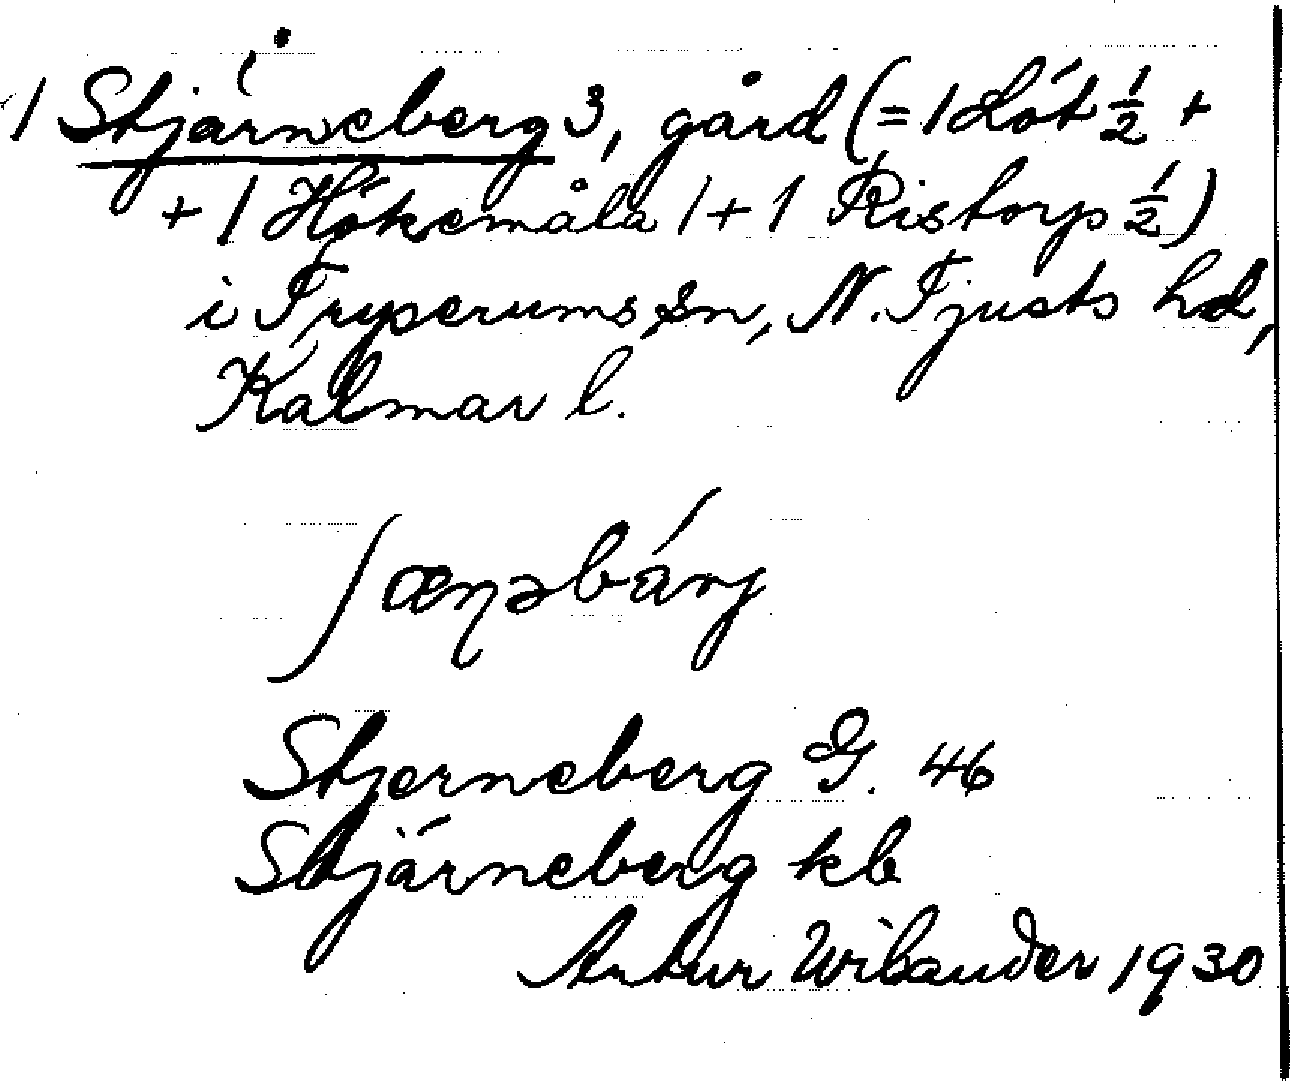 1 Stjärneberg 3, gård (= 1 Löt ½ +
+ 1 Hökemåla 1 + 1 Ristorp ½)
i Tryserums sn, N. Tjusts hd,
Kalmar l.
ʃæɳəbárj
Stjerneberg G. 46
Stjärneberg kb
Artur Wilander 1930